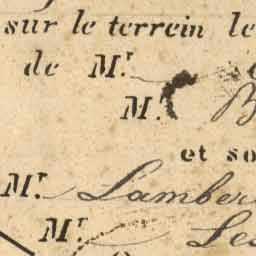 sur le terrein le
de Mr.
Mr. B
et so
Mr. Lamber
Mr. Les